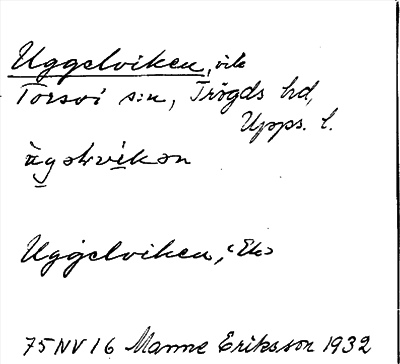 Uggelviken, vik
Torsvi s:n, Trögds hd,
Upps. l.
Uggelviken, Ek
75NV16 Manne Eriksson 1932